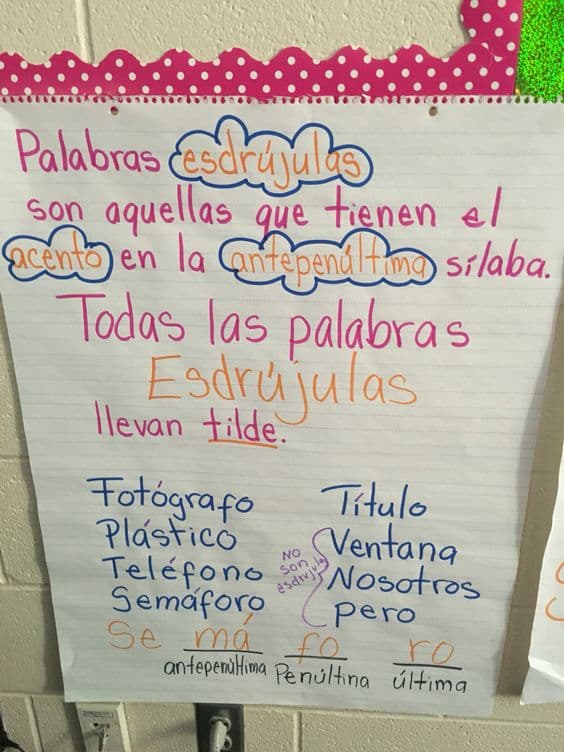 Palabras esdrújulas
son aquellas que tienen el
acento en la antepenúltima sílaba.
Todas las palabras
Esdrújulas
llevan tilde.
Fotógrafo
Plástico
Teléfono
Semáforo
Título
Ventana
Nosotros
pero
NO
son
esdrujulas
Se má fo ro
antepenúltima Penúltina última